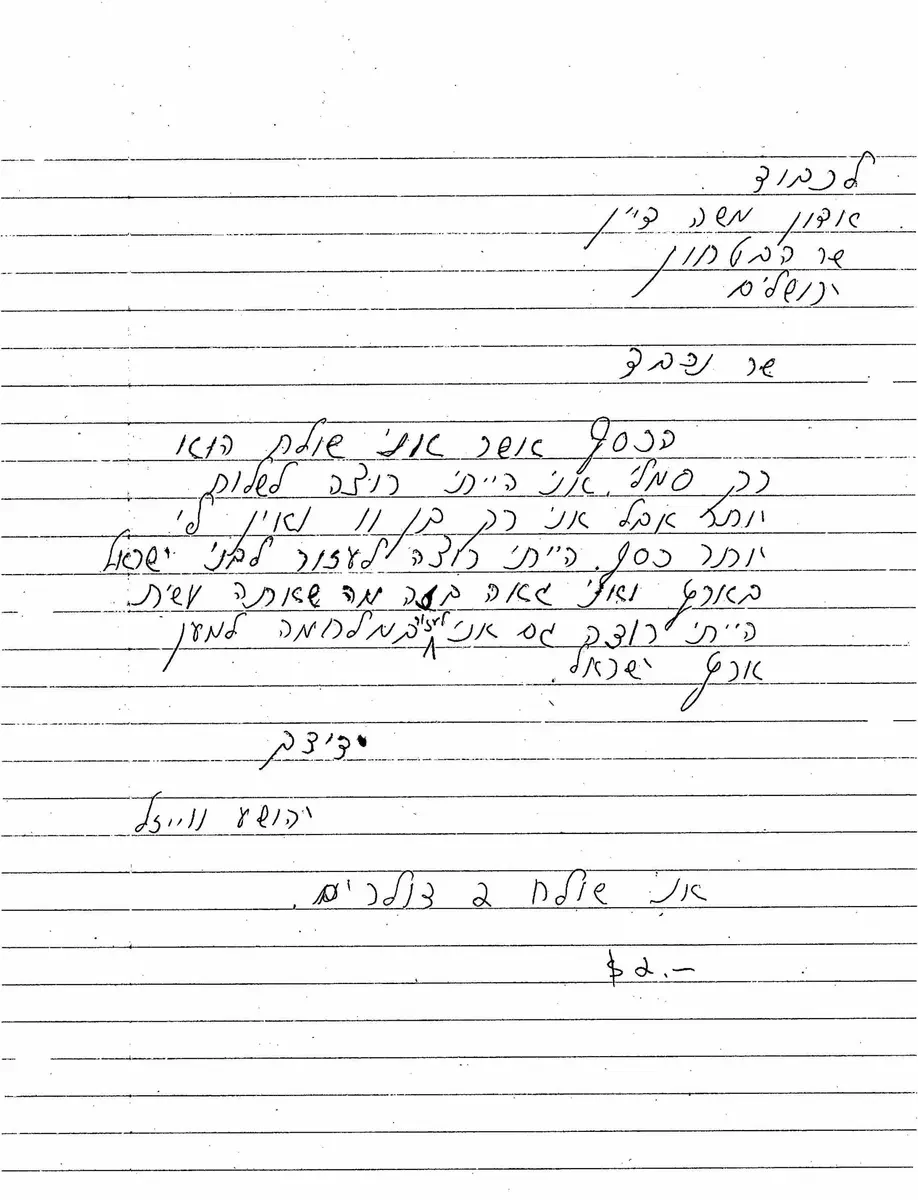 לכבוד
אדון משה דיין
שר הבטחון
ירושלים
שר נכבד
הכסף אשר אני שולח הוא
רק סמלי. אני הייתי רוצה לשלוח
יותר אבל אני רק בן 11 ואין לי
יותר כסף. הייתי רוצה לעזור לבני ישראל
בארץ ואני גאה בזה מה שאתה עשית.
הייתי רוצה גם אני לעזור במלחמה למען
ארץ ישראל.
ידידך
יהושע ווייזל
אני שולח 2 דולרים.
$2.—